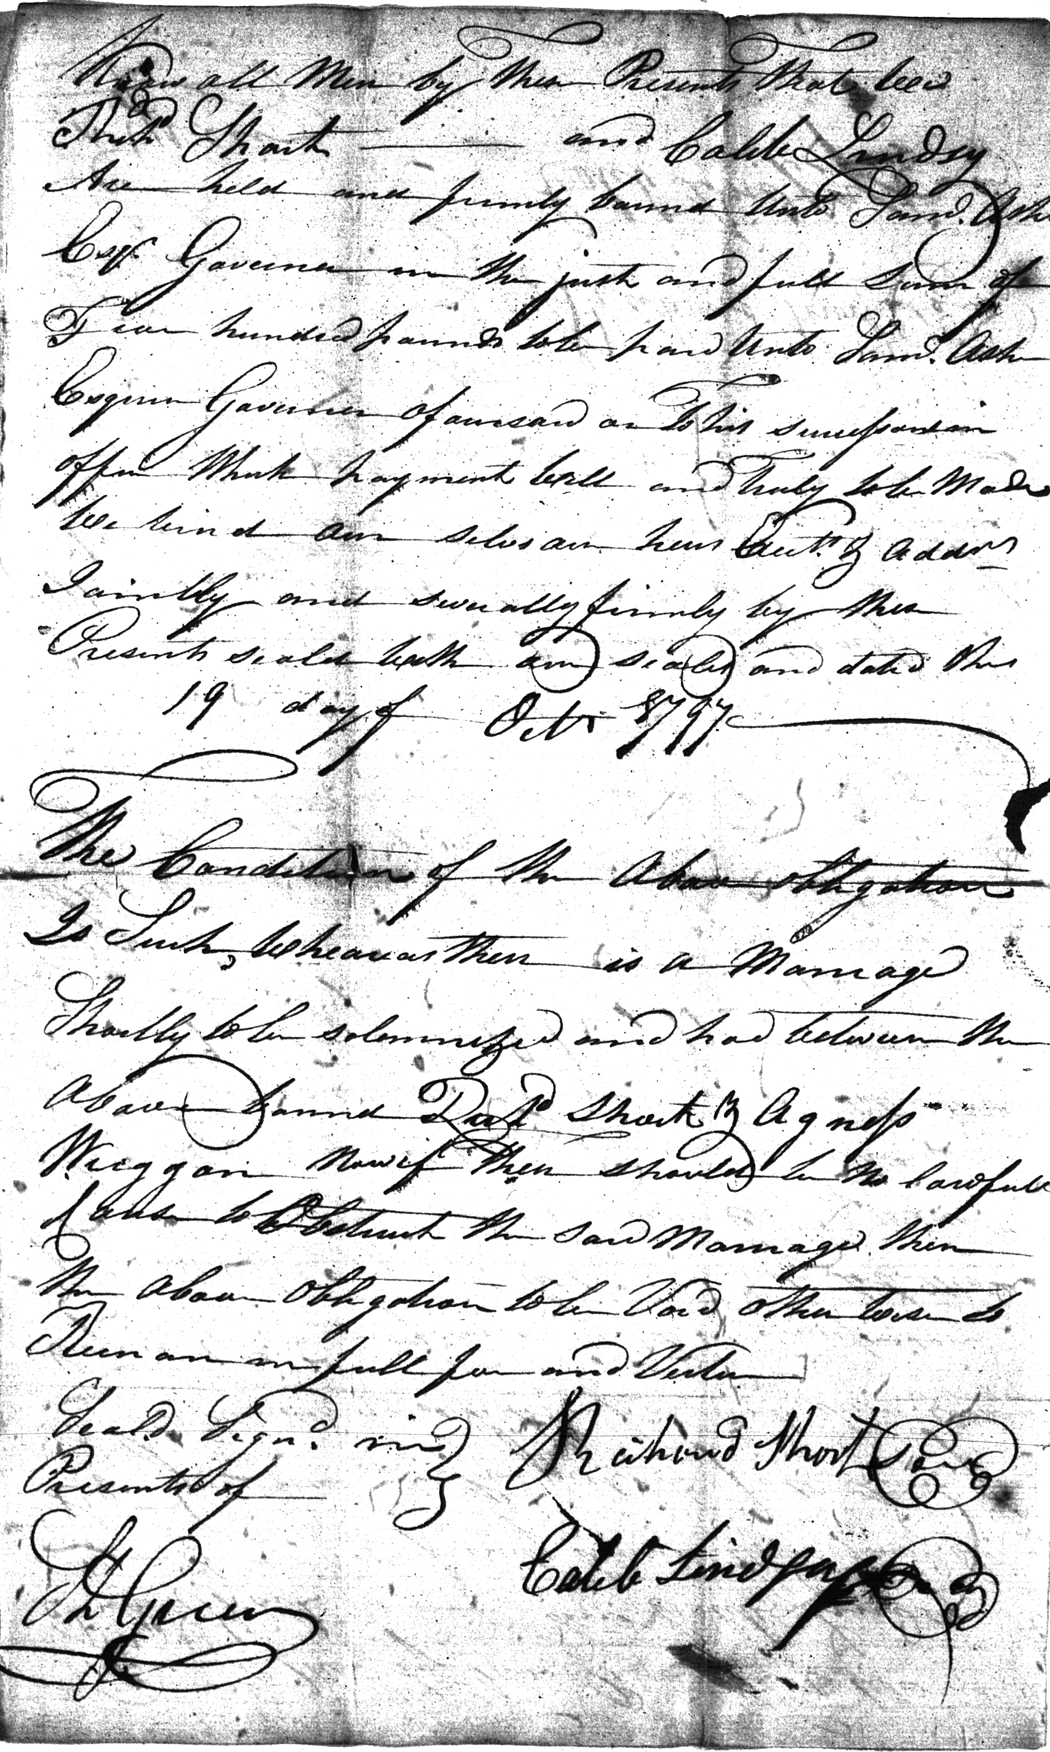 Know all Men by These Presents That wee
Richd Short and Caleb Lindsy
Are held and firmly bound Unto Saml. Ashe
Esqr. Governer in the just and full Sum of
Five hundred pounds to be paid Unto Saml. Ashe
Esquire Governer Aforesaid or To his successors in
office Which payment well and Truly to be Made
we bind our selves our heirs Exects & Addmrs
Jointly and severally firmly by these
Presents seald with our seales and dated this
19 day of Octr 1797
The Condition of the Above obligation
Is Such, Wheareas there is a Marriage
Shortly to be solemnized and had between the
Above bound Richd Short & Agness
Wiggon Now if there should be no lawfull
Cause to Obstruct the said Marriage then
the above Obligation to be Void otherwise to
Remain in full force and Vertue
Seald Signd. in
Presents of
Richard Short Seal
Caleb Lindsy
Green